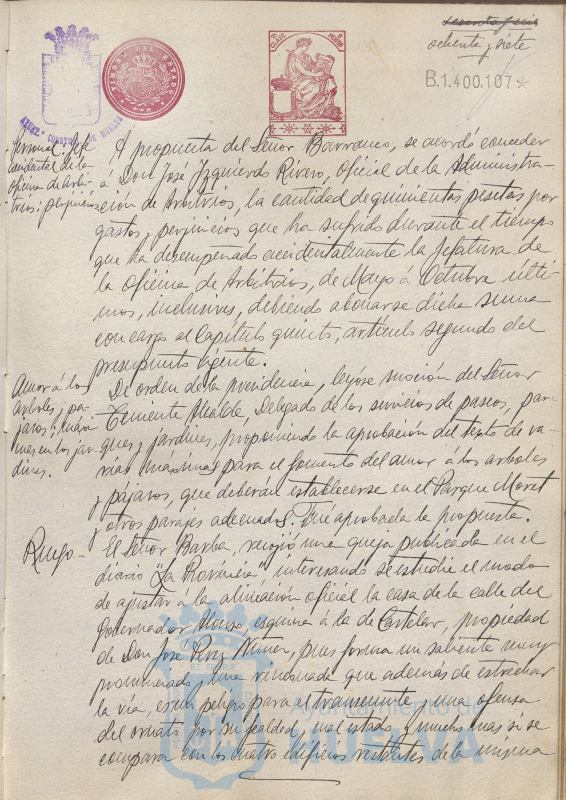 ochenta y siete
B.1.400.107
7ª CLASE
AYUNT. CONSTITL. DE HUELVA
TIMBRE DEL ESTADO
Personal. Jefe
accidental de la
oficina de Arbi-
trios: perjuicios
A propuesta del Señor Barranco, se acordó conceder
á Don Jose Izquierdo Rivero, Oficial de la Administra-
cion de Arbitrios, la cantidad de quinientas pesetas por
gastos y perjuicios que ha sufrido durante el tiempo
que ha desempeñado accidentalmente la jefatura de
la oficina de Arbitrios, de Mayo á Octubre últi-
mos, inclusives, debiendo abonarse dicha suma
con cargo al Capítulo quinto, artículo segundo del
presupuesto vigente.
Amor á los
árboles y pá-
jaros; máxi-
mas en los jar-
dines.
De orden de la presidencia, leyóse moción del Señor
Teniente Alcalde, Delegado de los servicios de paseos, par-
ques y jardines, proponiendo la aprobación del texto de va-
rias máximas para el fomento del amor á los arboles
y pájaros, que deberán establecerse en el Parque Moret
y otros parajes adecuados. Fué aprobada la propuesta.
Ruego -
El Señor Barba, recojió una queja publicada en el
diario "La Provincia" interesando se estudie el modo
de ajustar á la alineación oficial la casa de la calle del
Gobernador Alonso, esquina á la de Castelar, propiedad
de Don José Perez, pues forma un saliente muy
pronunciado y una rinconada que además de estrechar
la via, es un peligro para el transeunte y una ofensa
del ornato por su fealdad, mal estado y mucho mas si se
compara con los cuatro edificios restantes de la misma
Ayuntamiento de
HUELVA